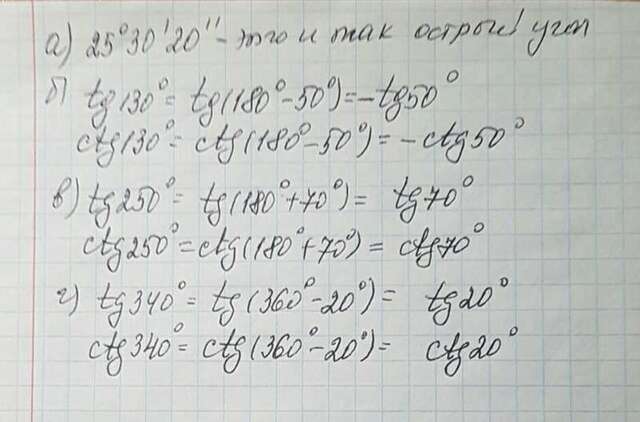 а) 25°30'20'' - это и так острый угол
б) tg130° = tg(180° - 50°) = -tg50°
ctg130° = ctg(180° - 50°) = -ctg50°
в) tg250° = tg(180° + 70°) = tg70°
ctg250° = ctg(180° + 70°) = ctg70°
г) tg340° = tg(360° - 20°) = tg20°
ctg340° = ctg(360° - 20°) = ctg20°